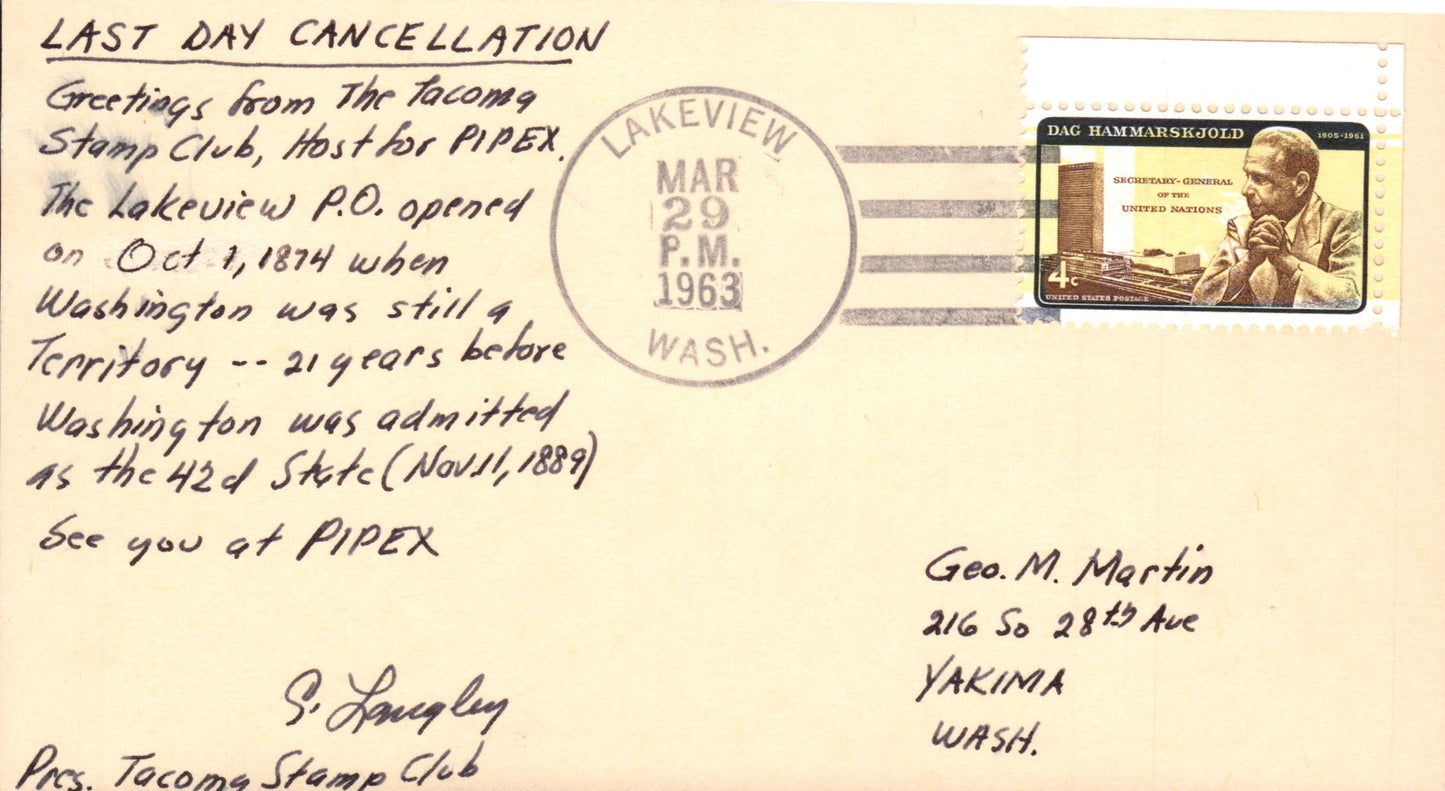 LAST DAY CANCELLATION
Greetings from The Tacoma
Stamp Club, Host for PIPEX.
The Lakeview P.O. opened
on Oct 1, 1874 when
Washington was still a
Territory -- 21 years before
Washington was admitted
as the 42d State (Nov. 11, 1889)
See you at PIPEX
S. Langley
Pres. Tacoma Stamp Club
LAKEVIEW
MAR
29
P.M.
1963
WASH.
DAG HAMMARSKJOLD
1905-1961
SECRETARY-GENERAL
OF THE
UNITED NATIONS
4c
UNITED STATES POSTAGE
Geo. M. Martin
216 So 28th Ave
YAKIMA
WASH.